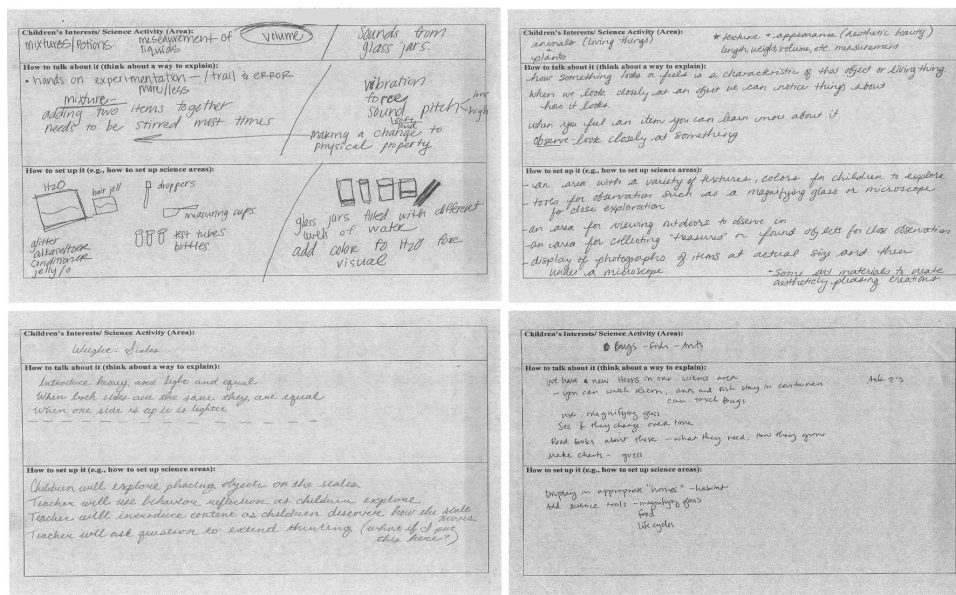 Children's Interests/ Science Activity (Area):
mixtures/potions measurement of liquids volume
Sounds from glass jars.
How to talk about it (think about a way to explain):
• hands on experimentation - / trail & ERROR
more/less
mixture -
adding two items together
needs to be stirred most times
vibration
forces
sound pitch < low high
soft loud
making a change to
physical property
How to set up it (e.g., how to set up science areas):
H2O
hair jell
droppers
measuring cups
test tubes
bottles
glitter
alkaseltzer
conditioner
jelly/o
glass jars filled with different
levels of water
add color to H2O for
visual
Children's Interests/ Science Activity (Area):
animals (living things)
plants
* texture + appearance (aesthetic beauty)
length, weight, volume, etc. measurement
How to talk about it (think about a way to explain):
how something looks or feels is a characteristic of this object or living thing
when we look closely at an object we can notice things about
how it looks.
when you feel an item you can learn more about it
observe - look closely at something
How to set up it (e.g., how to set up science areas):
- an area with a variety of textures, colors for children to explore
- tools for observation such as a magnifying glass or microscope
for close exploration
- an area for viewing outdoors to observe in
- an area for collecting "treasures" or found objects for close observation
- display of photographs of items at actual size and then
under a microscope
- some art materials to create
aesthetically pleasing creations
Children's Interests/ Science Activity (Area):
Weight - Scales
How to talk about it (think about a way to explain):
Introduce heavy and light and equal
When both sides are the same they are equal
When one side is up it is lighter
How to set up it (e.g., how to set up science areas):
Children will explore placing objects on the scales
Teacher will use behavior reflection as children explore
Teacher will introduce content as children discover how the scale
moves
Teacher will ask question to extend thinking (what if I put
this here?)
Children's Interests/ Science Activity (Area):
Bugs - Fish - Ants
How to talk about it (think about a way to explain):
We have a new items in our science area
- you can watch them, ants and fish stay in containers
can touch bugs
use magnifying glass
See if they change over time
Read books about these - what they need, how they grow
Make charts - guess
How to set up it (e.g., how to set up science areas):
Display in appropriate "homes" - habitat
Add science tools - magnifying glass
food
life cycles